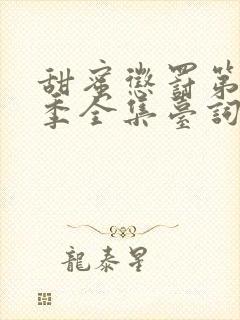 甜蜜懲罰第
季全集臺詞
龍泰星